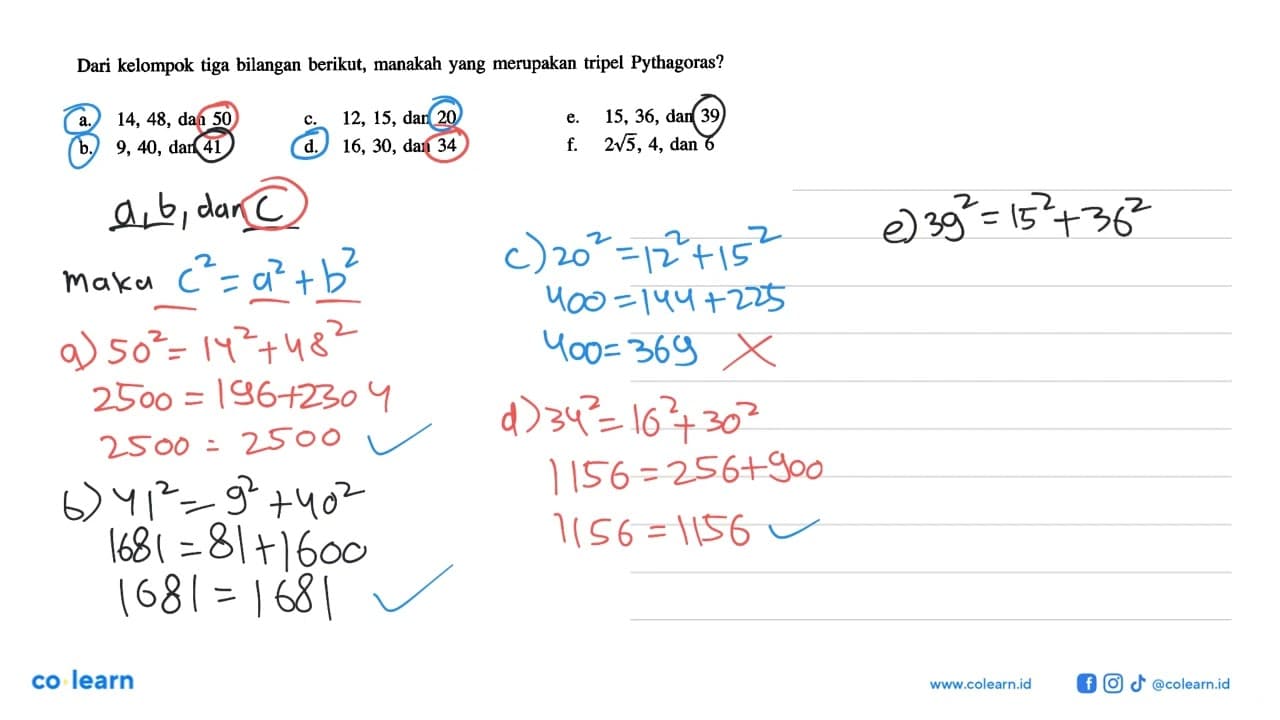 Dari kelompok tiga bilangan berikut, manakah yang merupakan tripel Pythagoras?
a. 14, 48, dan 50
b. 9, 40, dan 41
c. 12, 15, dan 20
d. 16, 30, dan 34
e. 15, 36, dan 39
f. 2√5, 4, dan 6
a, b, dan c
maka c² = a² + b²
a) 50² = 14² + 48²
2500 = 196 + 2304
2500 = 2500 ✓
b) 41² = 9² + 40²
1681 = 81 + 1600
1681 = 1681 ✓
c) 20² = 12² + 15²
400 = 144 + 225
400 = 369 ✗
d) 34² = 16² + 30²
1156 = 256 + 900
1156 = 1156 ✓
e) 39² = 15² + 36²
co learn
www.colearn.id
@colearn.id